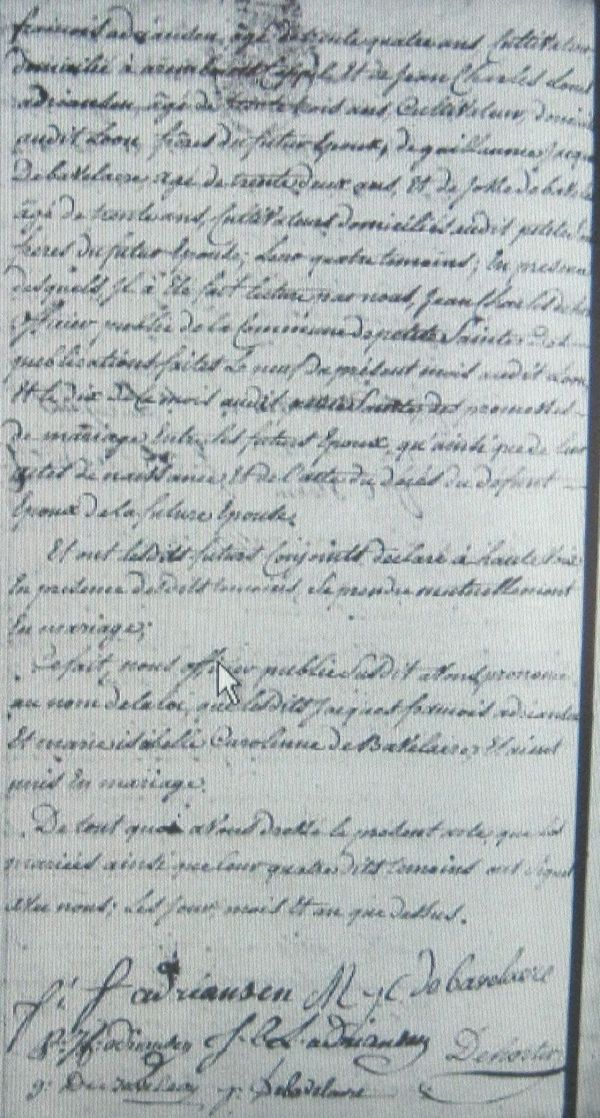 francois adriansen, âgé de trente quatre ans, Cultivateur
domicilié à Cappel Et de Jean Charles Louis
adriansen, âgé de trente trois ans, Cultivateur, domicilié
audit Loon, frères du futur Epoux, de guillaume Jacques
De bavelaere, âgé de trente deux ans, Et de
âgé de trente ans, Cultivateurs domiciliés audit petite
freres du futur Epouse; Leur quatre temoins; En presence
desquels Il à Eté fait lecture par nous, Jean Charles
officier public de la Commune de petite Sainte, Des
publications faites Le neuf du présent mois audit Loon
Et le dix du mois audit petite Sainte, des promesses
de mariage Entre les futurs Epoux, qu'ainsi que de leur
actes de naissance, Et de l'acte du décés du defunt
Epoux de la future Epouse.
Et ont lesdits futurs Conjoints declaré à haute voix
En presence desdits temoins, Se prendre mutuellement
En mariage;
Ce fait, nous officier public Susdit avons prononcé
au nom de la loi, que lesdits Jacques francois adriansen
Et marie isabelle Carolinne de Bavelaere, Etaient
unis En mariage.
De tout quoi avons dressé le present acte, que les
mariés ainsi que leur quatre dits temoins ont signé
avec nous; Les Jour, mois Et an que dessus.
J: f adriansen M y C de bavelaere
p: f: adriansen J. C. L. adriansen
g: De bavelaere j: Debavelaere